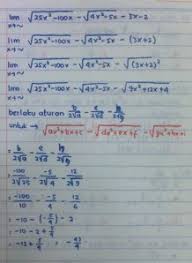 lim √25x²-100x - √4x²-5x - 3x-2
x→~
lim √25x²-100x - √4x²-5x - (3x+2)
x→~
lim √25x²-100x - √4x²-5x - √(3x+2)²
x→~
lim √25x²-100x - √4x²-5x - √9x²+12x+4
x→~
berlaku aturan b/2√a - e/2√d - h/2√g
untuk → √ax²+bx+c - √dx²+ex+f - √gx²+hx+i
= b/2√a - e/2√d - h/2√g
= -100/2√25 - -5/2√4 - 12/2√9
= -100/10 - -5/4 - 12/6
= -10 - (-5/4) - 2
= -10 - 2 + 5/4
= -12 + 5/4 = -43/4